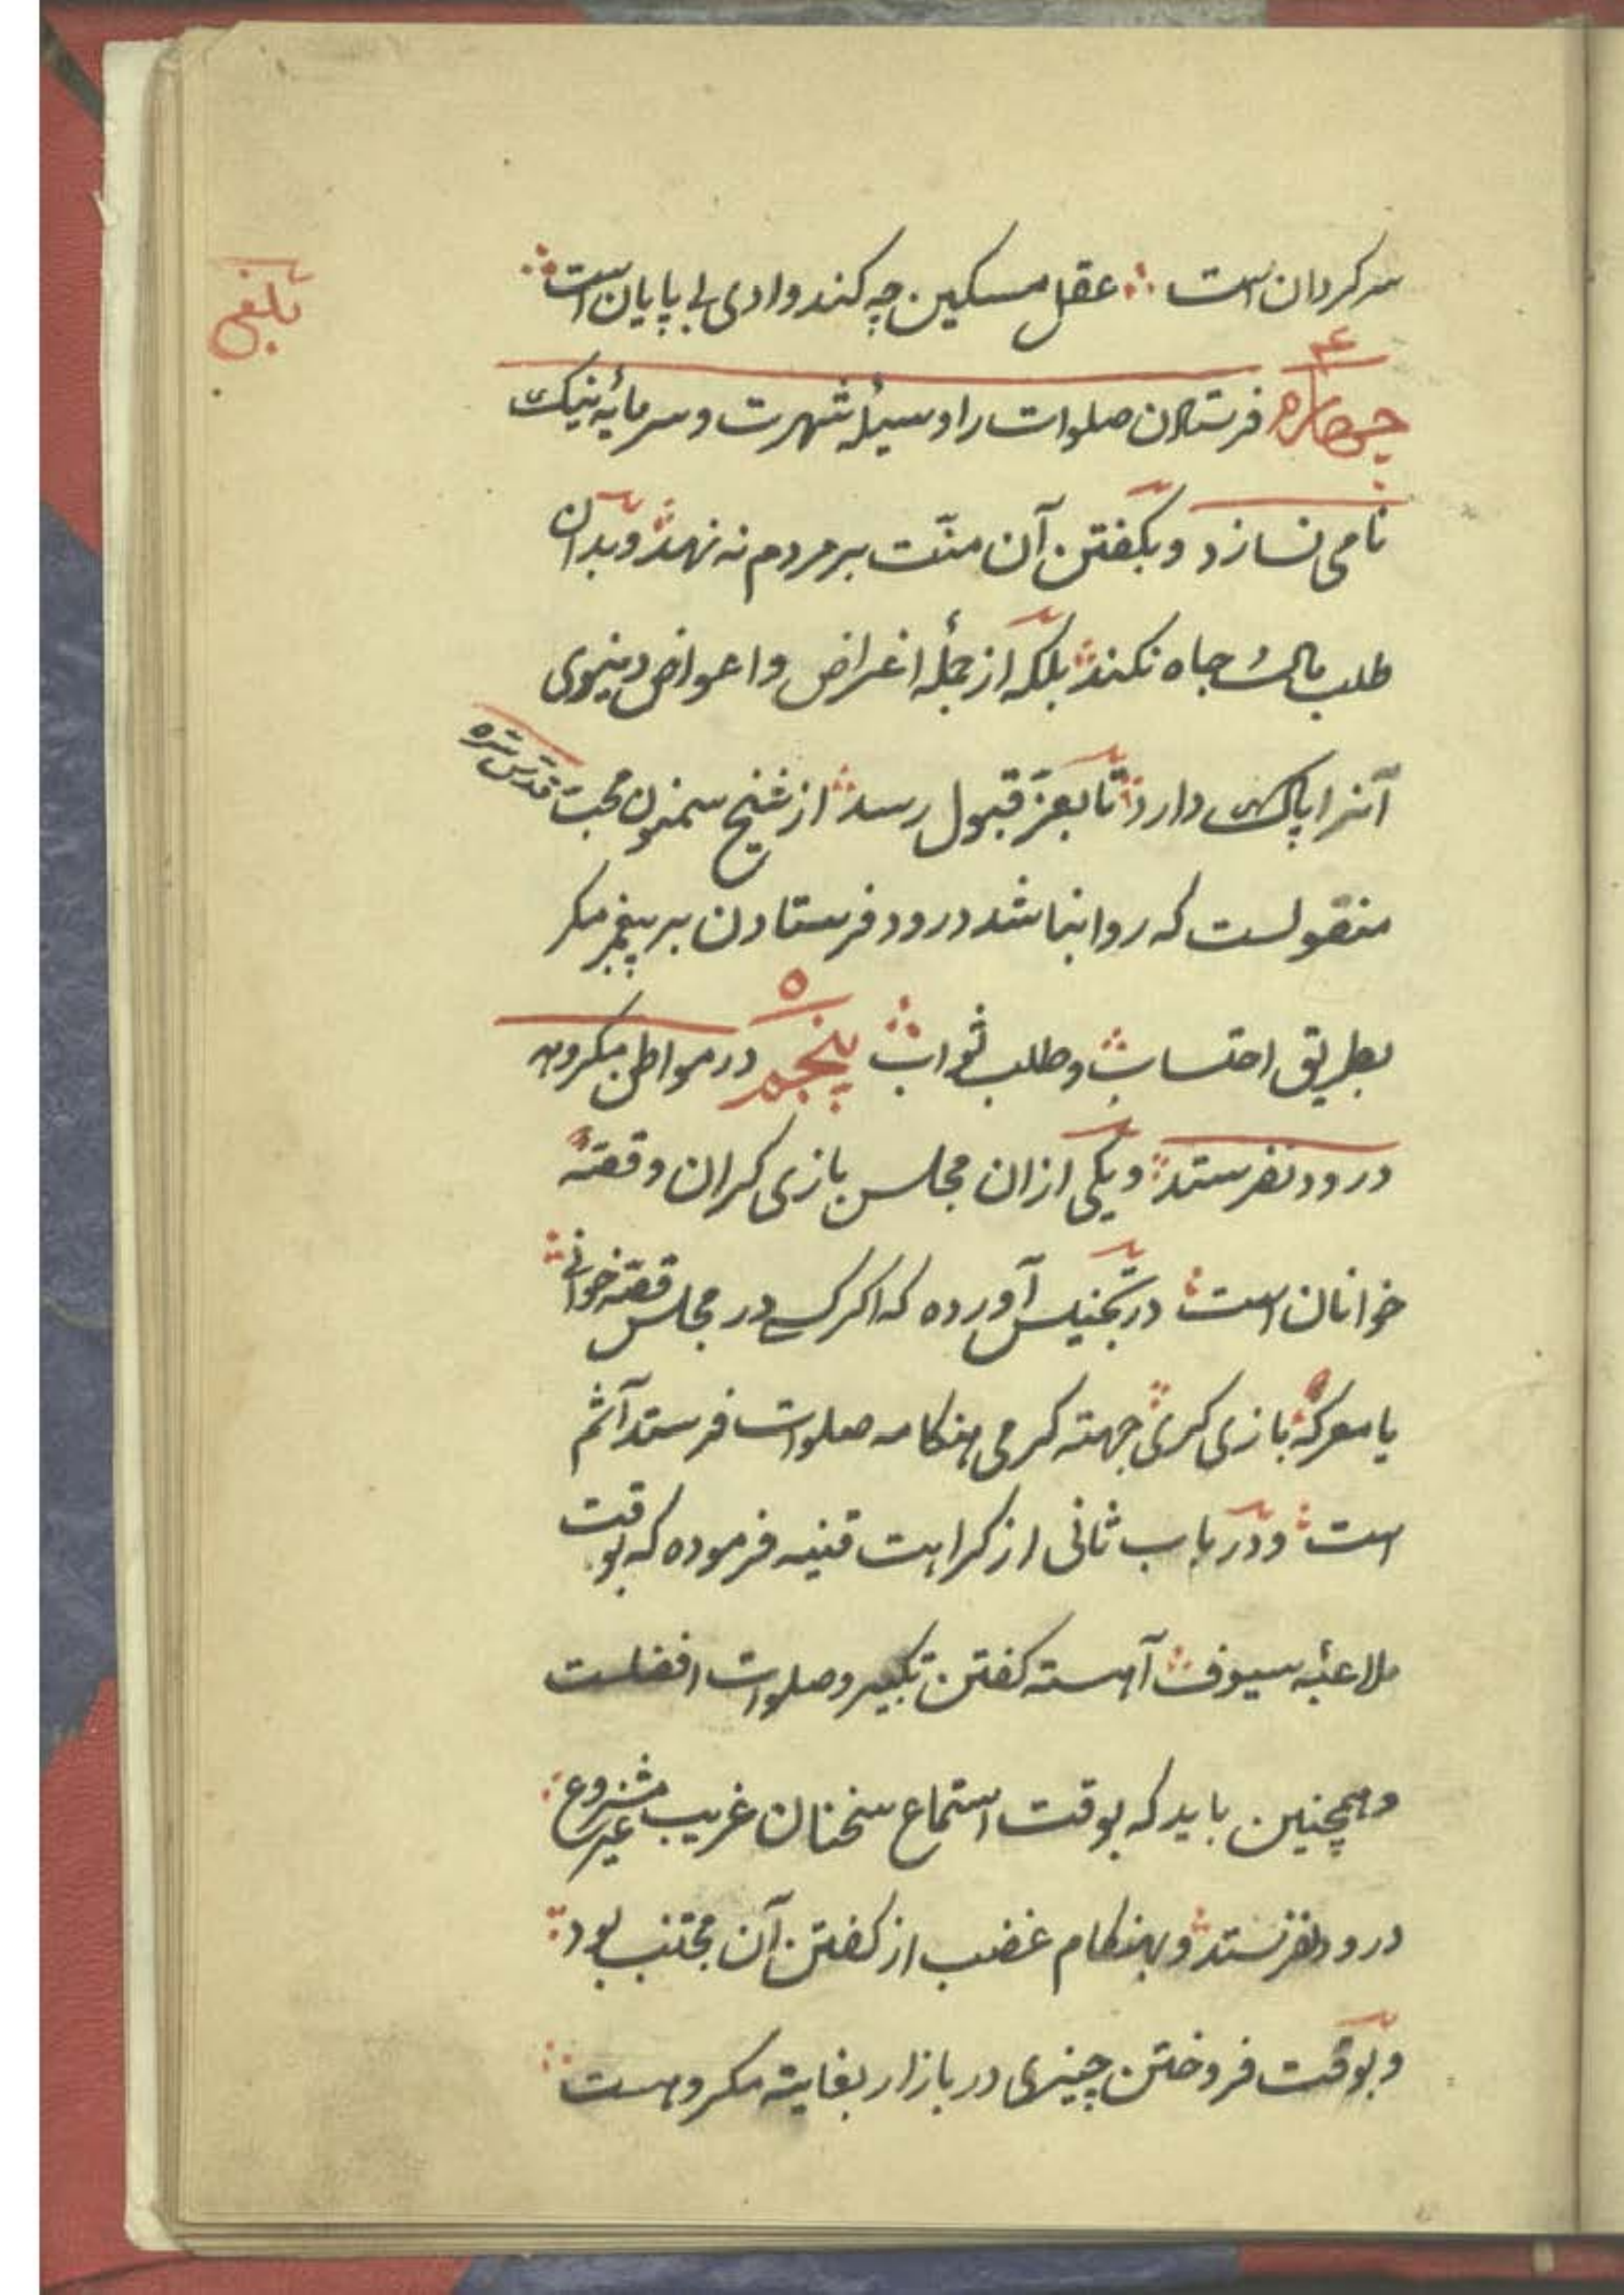 سرکردان است عقل مسکین چه کند وادی بی پایان است
بلغی
۴
چهارم فرستادن صلوات را وسیلۀ شهرت و سرمایۀ نیک
نامی نسازد و بکفتن آن منّت بر مردم نه نهد و بدان
طلب مال و جاه نکند بلکه از جملۀ اغراض و اعواض دنیوی
آنرا پاک دارد تا بعزّ قبول رسد از شیخ سمنون محبّ قدّس سرّه
منقولست که روا نباشد درود فرستادن بر پیغمبر مکر
۵
بطریق احتساب و طلب ثواب پنجم در مواطن مکروه
درود نفرستد و یکی ازان مجلس بازی کران و قصّه
خوانان است در تجنیس آورده که اکر کسی در مجلس قصّه خوانی
یا معرکۀ بازی کری جهته کرمی هنکامه صلوات فرستد آثم
است و در باب ثانی از کراهت قنیه فرموده که بوقت
ملاعبۀ سیوف آهسته کفتن تکبیر و صلوات افضلست
و همچنین باید که بوقت استماع سخنان غریب غیر مشروع
درود نفرستد و بهنکام غضب از کفتن آن مجتنب بود
و بوقت فروختن چیزی در بازار بغایته مکروهست